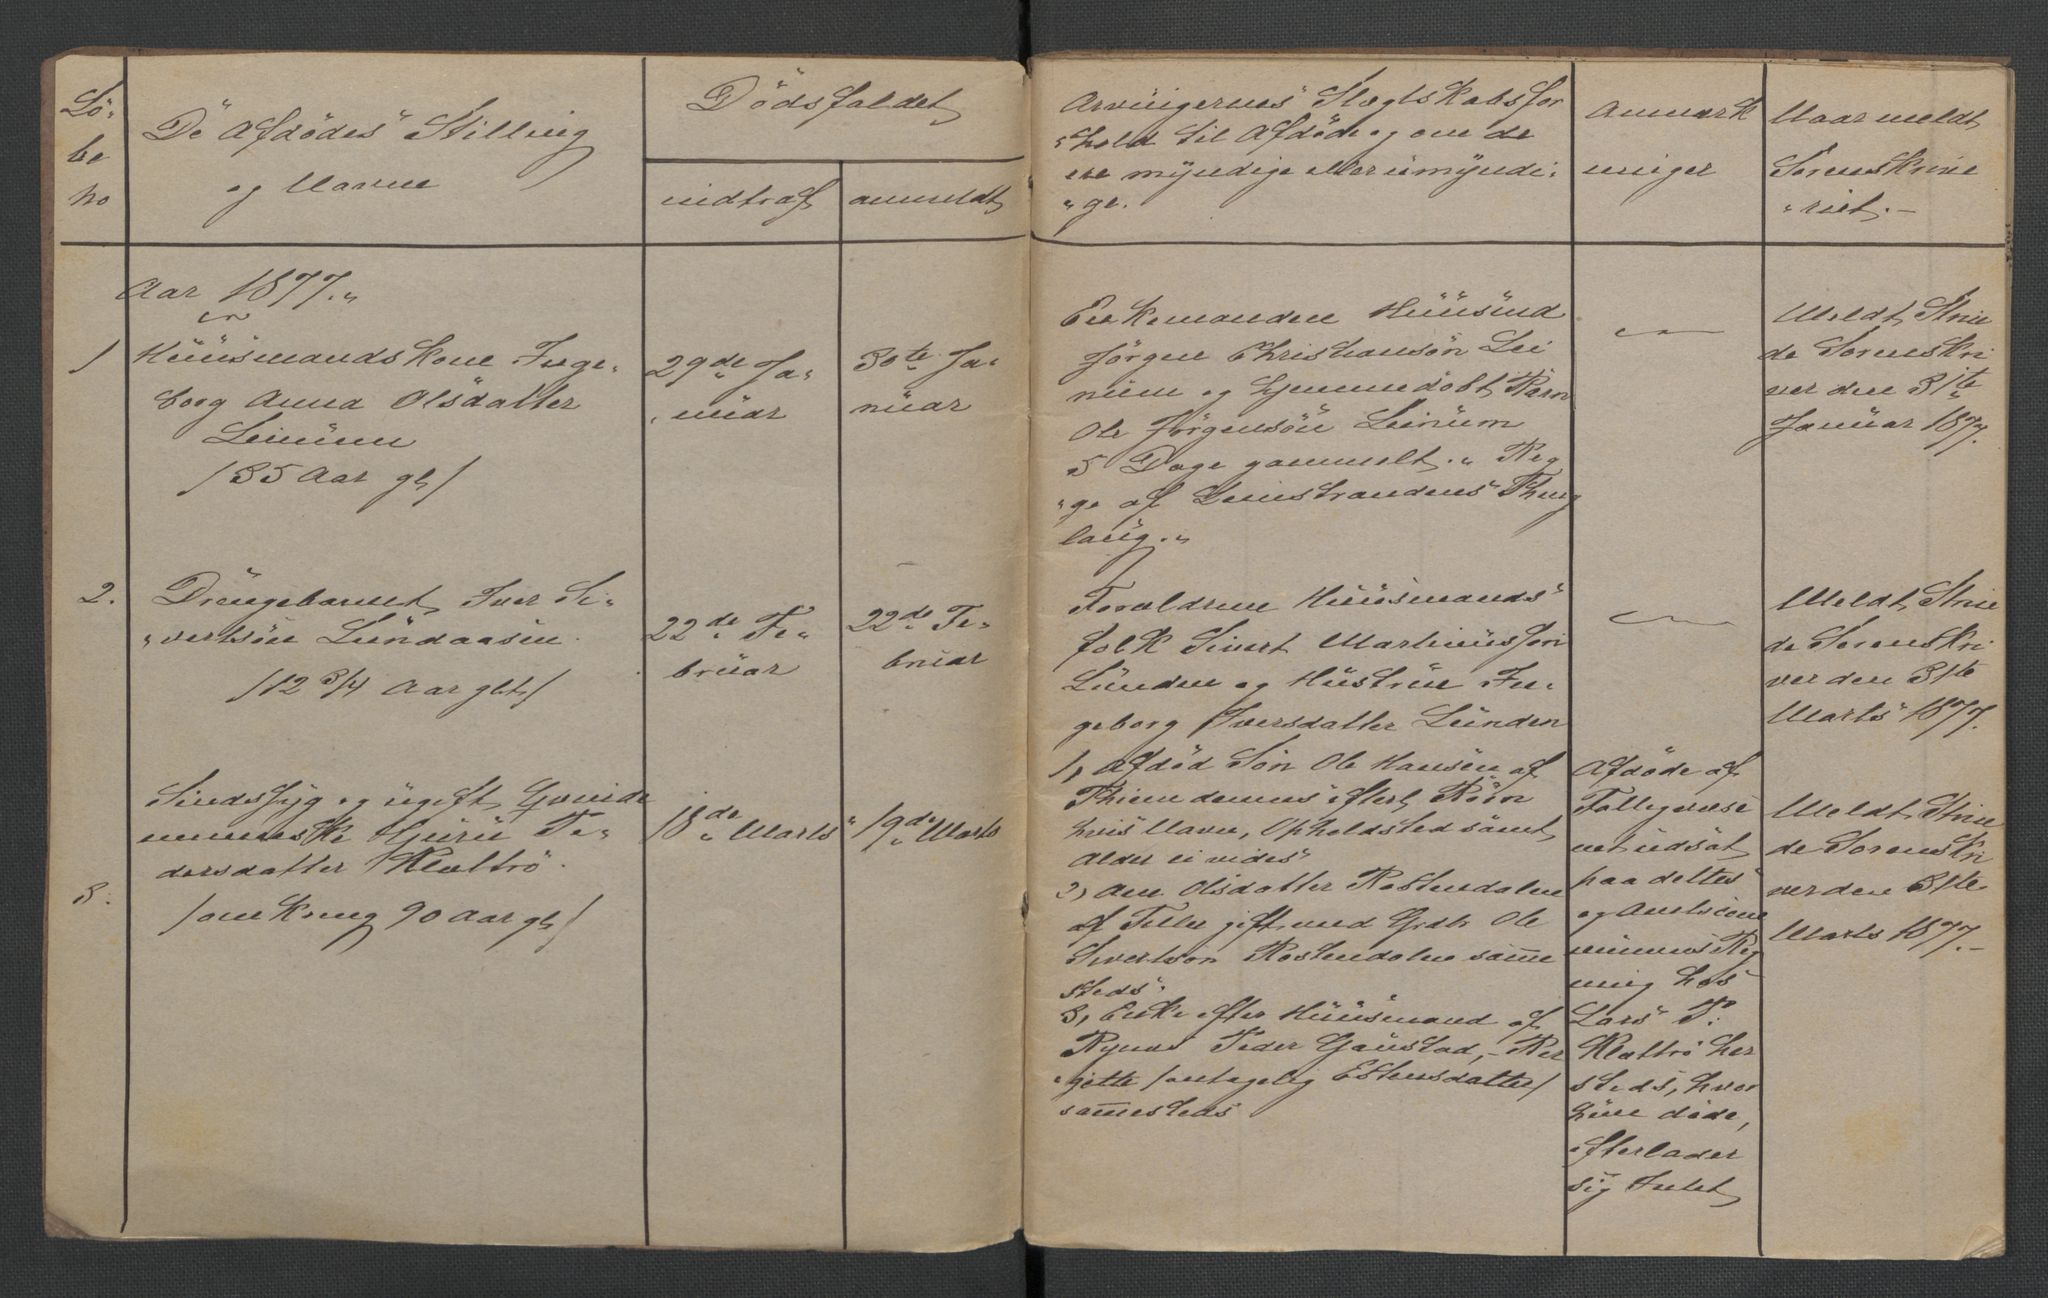 Lö-
be
no
De Afdödes Stilling
og Navne
Dödsfaldet
indtraf
anmeldt
Arvingernes Slægtskabsfor
"hold til Afdöde og om de
ere myndige eller umyndi-
"ge.
Anmærk
ninger
Naar meldt
Sorenskrive
"riet.-
Aar 1877."
1
Huusmandskone Inge-
borg Anna Olsdatter
Leinum
/35 Aar gl/
29de Ja-
nuar
30te Ja-
nuar
Enkemanden Huusmd
Jörgen Christiansön Lei
num og hjemmedöbt Barn
Ole Jörgensön Leinum
5 Dage gammelt." Beg
"ge af Leinstrandens Thing
laug."
Meldt Strin
de Sorenskri
ver den 31te
Januar 1877.
2.
Drengebarnet Iver Si-
"vertsön Lundaasen
/12 3/4 Aar glt/
22de Fe-
bruar
22de Fe-
bruar
Forældrene Huusmands
folk Sivert Martinussön
Lunden og Hustrue In-
geborg Iversdatter Lunden
Meldt Strin
de Sorenskri
ver den 31te
Marts 1877.
3.
Sindssyg og ugift Qvinde
menneske Guru Pe-
dersdatter Klættrö
/omkring 90 Aar gl/
18de Marts
19de Marts
1, Afdöd Sön Ole Hansen af
Throndennes efterl Börn
hvis Navne, Opholdsted samt
Alder ei vides
2, Ane Olsdatter Rostendalen
af Tiller gift med Grdbr Ole
Sivertsön Rostendalen samme
steds.
3, Enke efter Huusmand af
Bynes Peder Gaustad, - Ber
"gitte /antagelig Estensdatter/
sammesteds
Afdöde af
Fattigvæse
net udsat
paa dettes
og
Reg
ning hos
Lars P.
Klættrö her
steds, hvor
hun döde,
efterlader
sig Intet
Meldt Strin
de Sorenskri
ver den 31te
Marts 1877.-